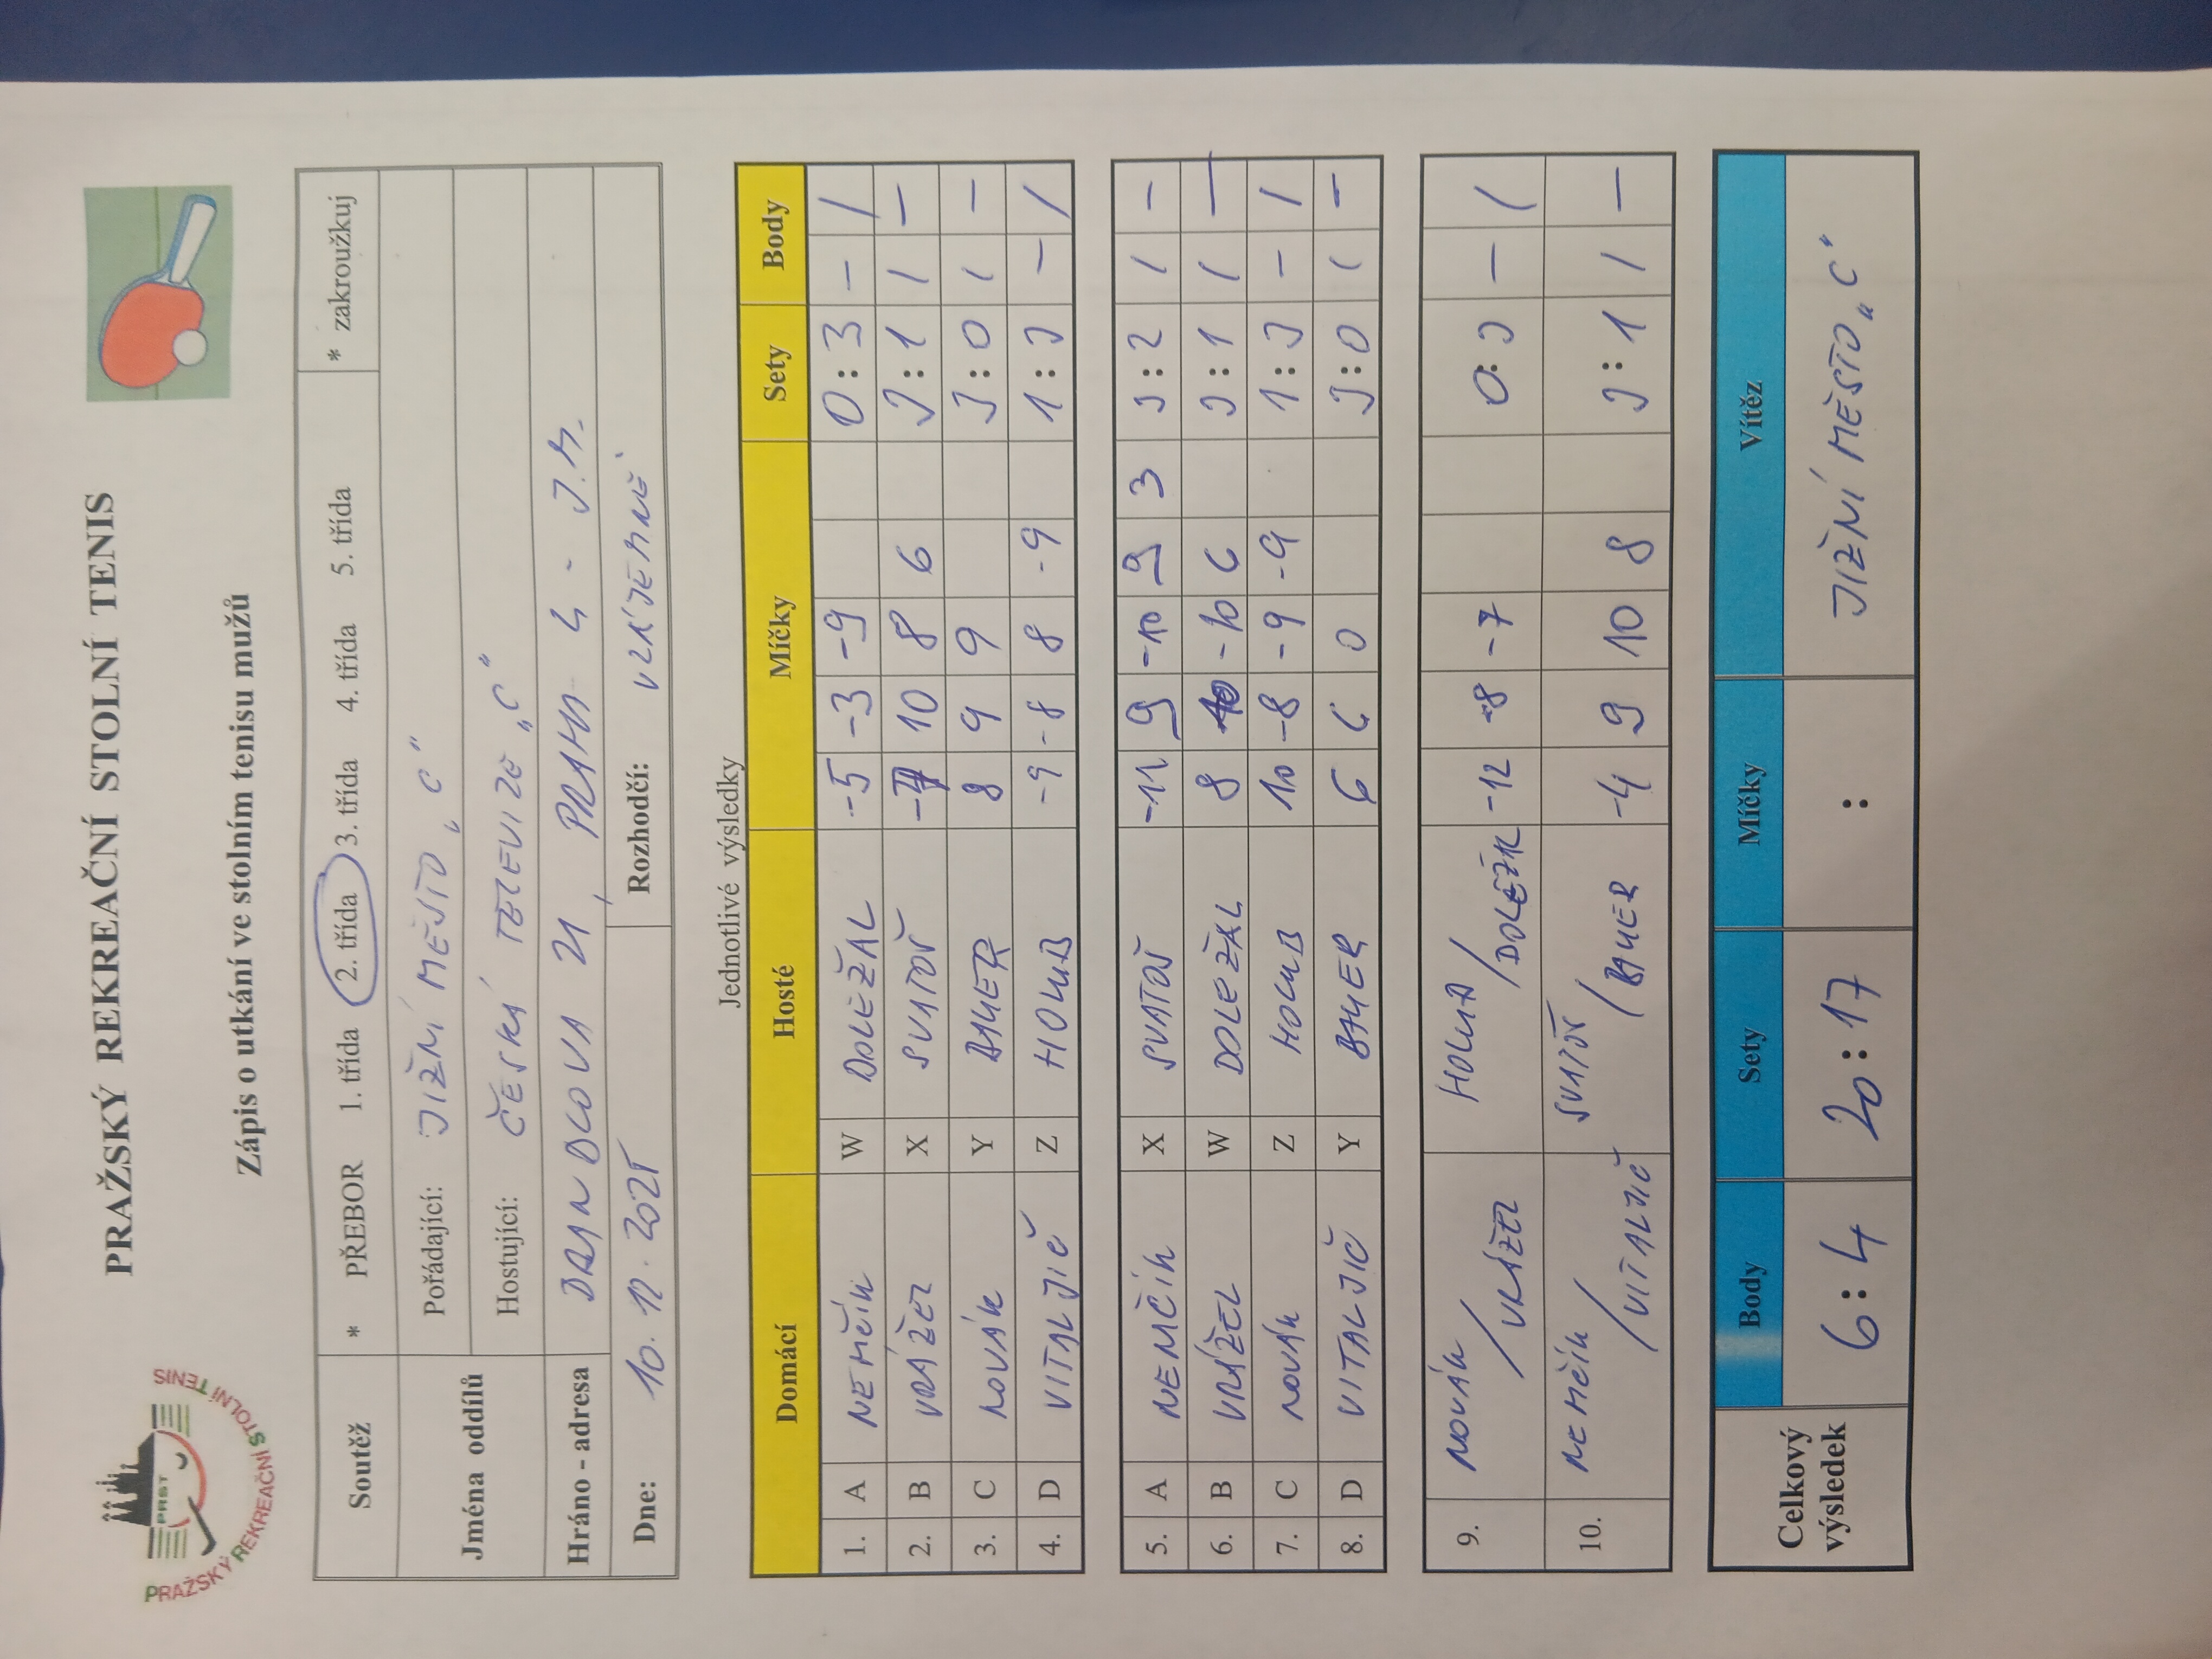 PRAŽSKÝ REKREAČNÍ STOLNÍ TENIS
PRST
PRAŽSKÝ REKREAČNÍ STOLNÍ TENIS
Zápis o utkání ve stolním tenisu mužů
Soutěž * PŘEBOR 1. třída 2. třída 3. třída 4. třída 5. třída * zakroužkuj
Jména oddílů
Pořádající: JIŽNÍ MĚSTO „C"
Hostující: ČESKÁ TELEVIZE „C"
Hráno - adresa 21, PRAHA 4 - J.M.
Dne: 10. 12. 2025 Rozhodčí: VZÁJEMNĚ
Jednotlivé výsledky
Domácí Hosté Míčky Sety Body
1. A NEMČÍK W DOLEŽAL -5 -3 -9 0 : 3 - 1
2. B VRÁŽEL X SVATOŠ 10 8 6 3 : 1 1 -
3. C NOVÁK Y BAUER 8 9 9 3 : 0 1 -
4. D VITALJIČ Z HOLUB -9 -8 8 -9 1 : 3 - 1
5. A NEMČÍK X SVATOŠ -11 9 -10 9 3 3 : 2 1 -
6. B VRÁŽEL W DOLEŽAL 8 -10 6 3 : 1 1 -
7. C NOVÁK Z HOLUB 10 -8 -9 -9 1 : 3 - 1
8. D VITALJIČ Y BAUER 6 6 0 3 : 0 1 -
9. NOVÁK / VRÁŽEL HOLUB / DOLEŽAL -12 -8 -7 0 : 3 - 1
10. NEMČÍK / VITALJIČ SVATOŠ / BAUER -4 9 10 8 3 : 1 1 -
Celkový výsledek
Body Sety Míčky Vítěz
6 : 4 20 : 17 : JIŽNÍ MĚSTO „C"